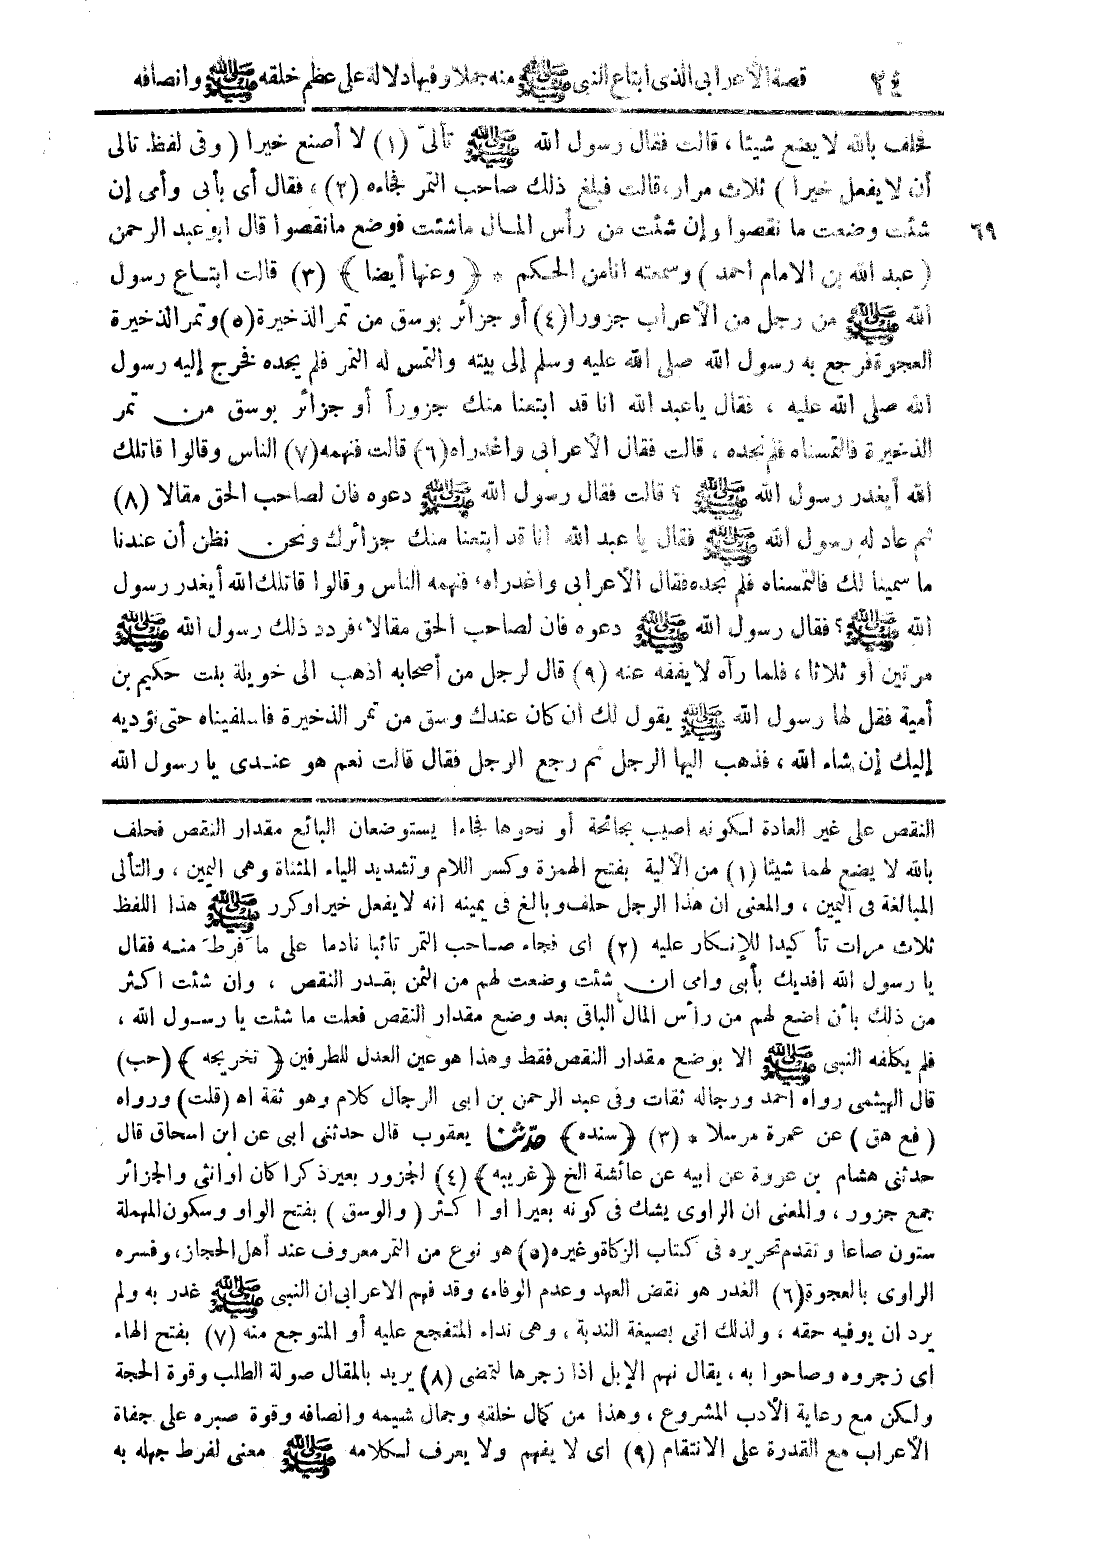 ٢٤ قصة الأعرابى الذى ابتاع النبى ﷺ منه جملا وفيها دلالة على عظم خلقه ﷺ وانصافه
تحلف بالله لا يضع شيئا ، قالت فقال رسول الله ﷺ تألىّ (١) لا أصنع خيرا ( وفى لفظ. تالى
أن لا يفعل خيرا ) ثلاث مرار، قالت فبلغ ذلك صاحب التمر فجاءه (٢) ، فقال أى بأبى وأمى إن
شئت وضعت ما نقصوا وإن شئت من رأس المال ماشئت فوضع مانقصوا قال ابو عبد الرحمن
٦٩
( عبد الله بن الامام احمد ) وسمعته انا من الحكم * ﴿ وعنها أيضا ﴾ (٣) قالت ابتاع رسول
الله ﷺ من رجل من الأعراب جزورا (٤) أو جزائر بوسق من تمر الذخيرة (٥) وتمر الذخيرة
العجوة فرجع به رسول الله صلى الله عليه وسلم إلى بيته والتمس له التمر فلم يجده فخرج إليه رسول
الله صلى الله عليه ، فقال ياعبد الله انا قد ابتعنا منك جزوراً أو جزائر بوسق من تمر
الذخيرة فالتمسناه فلم نجده ، قالت فقال الأعرابى واغدراه (٦) قالت فنهمه (٧) الناس وقالوا قاتلك
الله أيغدر رسول الله ﷺ ؟ قالت فقال رسول الله ﷺ دعوه فان لصاحب الحق مقالا (٨)
ثم عاد له رسول الله ﷺ فقال يا عبد الله انا قد ابتعنا منك جزائرك ونحن نظن أن عندنا
ما سمينا لك فالتمسناه فلم نجده فقال الأعرابى واغدراه، فنهمه الناس وقالوا قاتلك الله أيغدر رسول
الله ﷺ؟ فقال رسول الله ﷺ دعوه فان لصاحب الحق مقالا، فردد ذلك رسول الله ﷺ
مرتين او ثلاثا ، فلما رآه لا يفقه عنه (٩) قال لرجل من أصحابه اذهب الى خويلة بنت حكيم بن
أمية فقل لها رسول الله ﷺ يقول لك ان كان عندك وسق من تمر الذخيرة فاسلفيناه حتى نؤديه
إليك إن شاء الله ، فذهب اليها الرجل ثم رجع الرجل فقال قالت نعم هو عندى يا رسول الله
النقص على غير العادة لكونه اصيب بجائحة أو نحوها فجاءا يستوضعان البائع مقدار النقص فحلف
بالله لا يضع لهما شيئا (١) من الآلية بفتح الهمزة وكسر اللام وتشديد الياء المثناة وهى اليمين ، والتألى
المبالغة فى اليمين ، والمعنى ان هذا الرجل حلف وبالغ فى يمينه انه لا يفعل خيرا وكرر ﷺ هذا اللفظ
ثلاث مرات تأكيدا للإنكار عليه (٢) اى فجاء صاحب التمر تائبا نادما على ما فرط منه فقال
يا رسول الله افديك بأبى وامى ان شئت وضعت لهم من الثمن بقدر النقص ، وان شئت اكثر
من ذلك بأن اضع لهم من رأس المال الباقى بعد وضع مقدار النقص فعلت ما شئت يا رسول الله ،
فلم يكلفه النبى ﷺ الا بوضع مقدار النقص فقط وهذا هو عين العدل للطرفين ﴿ تخريجه ﴾ (حب)
قال الهيثمى رواه احمد ورجاله ثقات وفى عبد الرحمن بن ابى الرجال كلام وهو ثقة اه (قلت) ورواه
( فع هق ) عن عمرة مرسلا * (٣) ﴿سنده﴾ حدّثنا يعقوب قال حدثنى ابى عن ابن اسحاق قال
حدثنى هشام بن عروة عن ابيه عن عائشة الخ ﴿غريبه﴾ (٤) الجزور بعير ذكرا كان او انثى والجزائر
جمع جزور ، والمعنى ان الراوى يشك فى كونه بعيرا او اكثر ( والوسق ) بفتح الواو وسكون المهملة
ستون صاعا وتقدم تحريره فى كتاب الزكاة وغيره (٥) هو نوع من التمر معروف عند أهل الحجاز، وفسره
الراوى بالعجوة (٦) الغدر هو نقض العهد وعدم الوفاء، وقد فهم الاعرابى ان النبى ﷺ غدر به ولم
يرد ان يوفيه حقه ، ولذلك اتى بصيغة الندبة ، وهى نداء المتفجع عليه أو المتوجع منه (٧) بفتح الهاء
اى زجروه وصاحوا به ، يقال نهم الإبل اذا زجرها لتمضى (٨) يريد بالمقال صولة الطلب وقوة الحجة
ولكن مع رعاية الأدب المشروع ، وهذا من كمال خلقه وجمال شيمه وانصافه وقوة صبره على جفاة
الأعراب مع القدرة على الانتقام (٩) اى لا يفهم ولا يعرف لكلامه ﷺ معنى لفرط جهله به